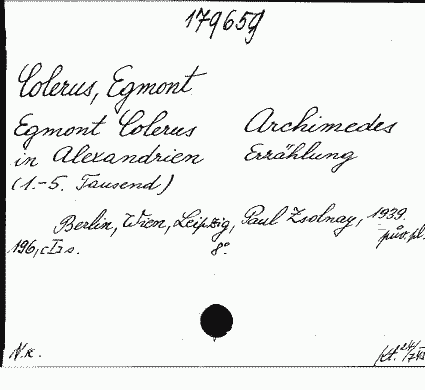 179659
Colerus, Egmont
Egmont Colerus Archimedes
in Alexandrien Erzählung
(1.-5. Tausend)
Berlin, Wien, Leipzig, Paul Zsolnay, 1939.
pův. pl.
196, [I] s. 8°.
N.k.